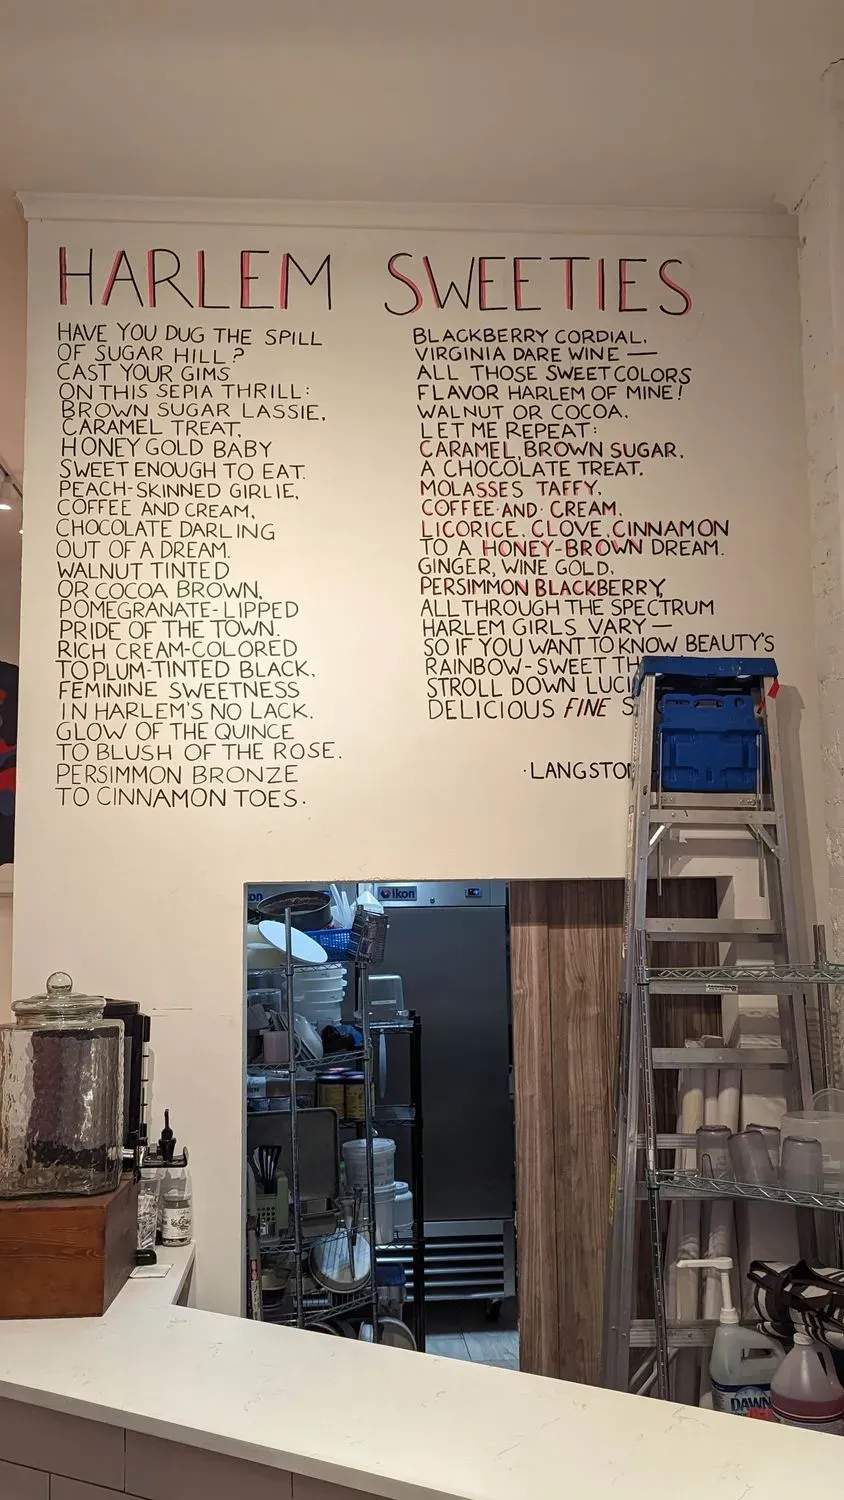 HARLEM SWEETIES
HAVE YOU DUG THE SPILL
OF SUGAR HILL?
CAST YOUR GIMS
ON THIS SEPIA THRILL:
BROWN SUGAR LASSIE,
CARAMEL TREAT,
HONEY GOLD BABY
SWEET ENOUGH TO EAT.
PEACH-SKINNED GIRLIE,
COFFEE AND CREAM,
CHOCOLATE DARLING
OUT OF A DREAM.
WALNUT TINTED
OR COCOA BROWN,
POMEGRANATE-LIPPED
PRIDE OF THE TOWN.
RICH CREAM-COLORED
TO PLUM-TINTED BLACK,
FEMININE SWEETNESS
IN HARLEM'S NO LACK.
GLOW OF THE QUINCE
TO BLUSH OF THE ROSE.
PERSIMMON BRONZE
TO CINNAMON TOES.
BLACKBERRY CORDIAL,
VIRGINIA DARE WINE—
ALL THOSE SWEET COLORS
FLAVOR HARLEM OF MINE!
WALNUT OR COCOA,
LET ME REPEAT:
CARAMEL, BROWN SUGAR,
A CHOCOLATE TREAT.
MOLASSES TAFFY,
COFFEE·AND·CREAM,
LICORICE, CLOVE, CINNAMON
TO A HONEY-BROWN DREAM.
GINGER, WINE GOLD,
PERSIMMON BLACKBERRY,
ALL THROUGH THE SPECTRUM
HARLEM GIRLS VARY—
SO IF YOU WANT TO KNOW BEAUTY'S
RAINBOW-SWEET TH
STROLL DOWN LUCI
DELICIOUS FINE S
·LANGSTON
ikon
DAWN